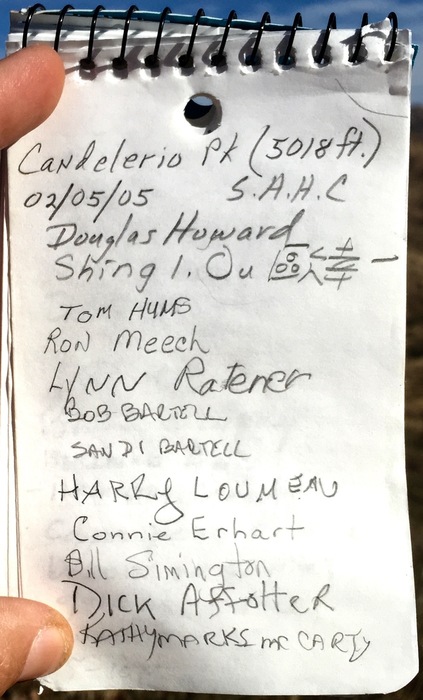 Candelerio Pt (5018 ft.)
02/05/05 S.A.H.C
Douglas Howard
Shing I. Ou
TOM
RON Meech
LYNN Ratener
BOB BARTELL
SANDI BARTELL
HARRY LOUMEAU
Connie Erhart
Bill Simington
DICK
KATHY MARKS MC CARTY